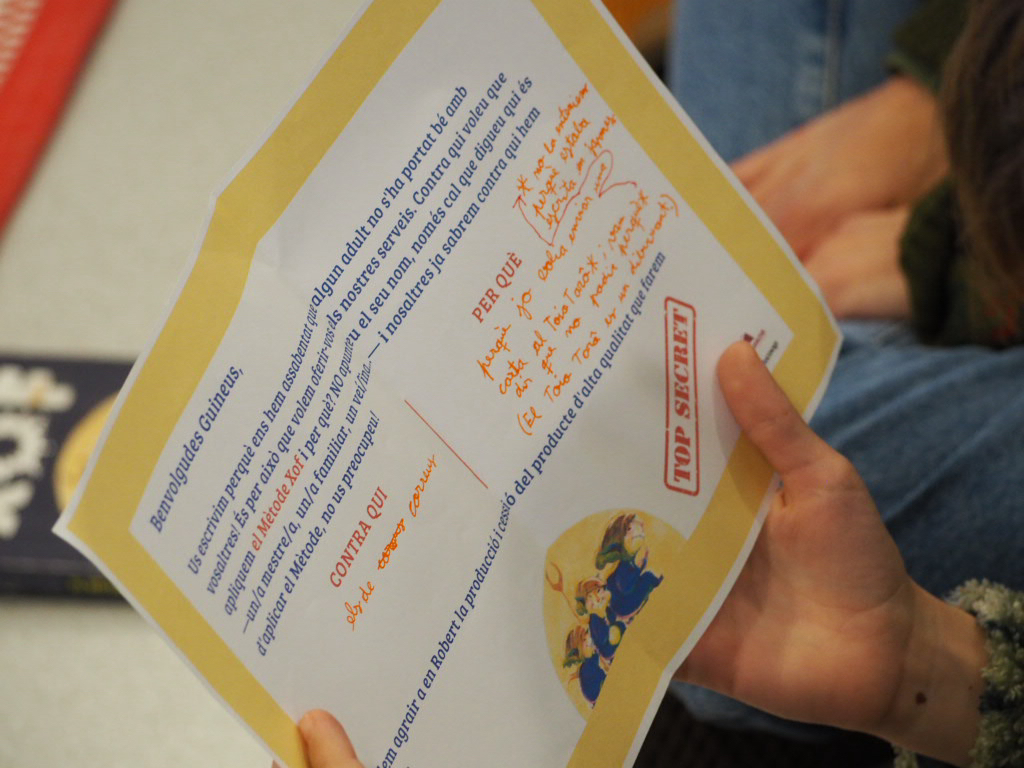 Benvolgudes Guineus,
Us escrivim perquè ens hem assabentat que algun adult no s'ha portat bé amb
vosaltres! És per això que volem oferir-vos els nostres serveis. Contra qui voleu que
apliquem el Mètode Xof i per què? NO el seu nom, només cal que digueu qui és
—un/a mestre/a, un/a familiar, un veí/ina— i nosaltres ja sabrem contra qui hem
d'aplicar el Mètode, no us preocupeu!
CONTRA QUI
els de correus
PER QUÈ
perquè jo volia enviar una
carta al Toro Torô* i van
dir que no podia perquè*
(El Toro Torô es un dinosaure!)
* no la enterien
perquè estaba
escrita en japones.
em agrair a en Robert la producció i cessió del producte d'alta qualitat que farem
TOP SECRET